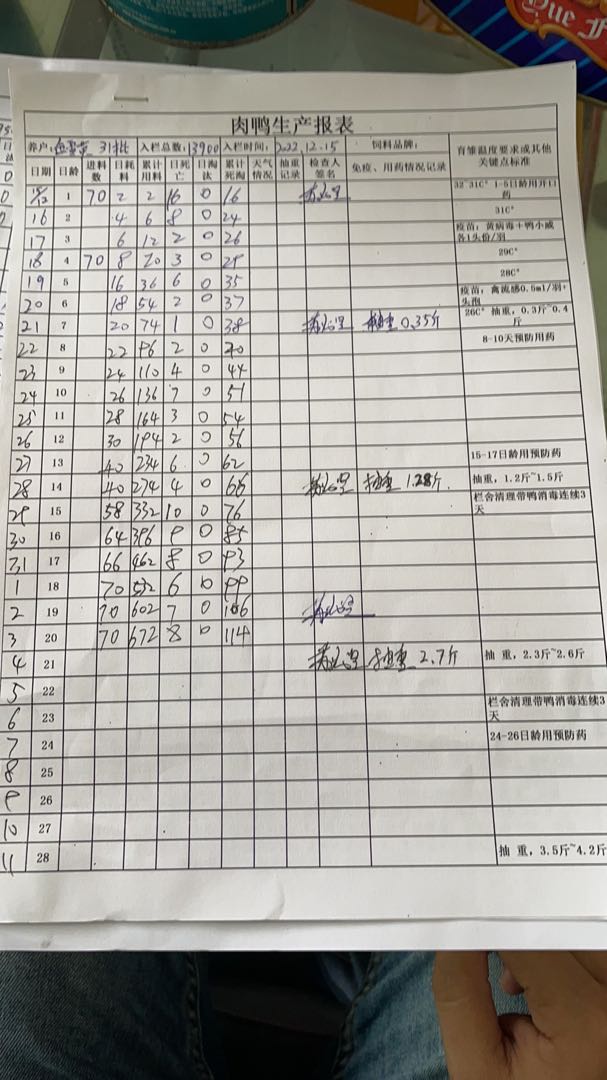 Que F
肉鸭生产报表
养户: 31批 入栏总数: 13900 入栏时间: 2022.12.15 饲料品牌: 育雏温度要求或其他关键点标准
日期 日龄 进料数 日耗料 累计用料 日死亡 日淘汰 累计死淘 天气情况 抽重记录 检查人签名 免疫、用药情况记录
15/12 1 70 2 2 16 0 16 32~31C° 1-5日龄用开口药
16 2 4 6 8 0 24 31C°
17 3 6 12 2 0 26 疫苗：黄病毒+鸭小威各1头份/羽
18 4 70 8 20 3 0 29 29C°
19 5 16 36 6 0 35 28C°
20 6 18 54 2 0 37 疫苗：禽流感0.5ml/羽+头孢
21 7 20 74 1 0 38 抽重 0.35斤 26C° 抽重，0.3斤~0.4斤
22 8 22 96 2 0 8-10天预防用药
23 9 24 110 4 0 44
24 10 26 136 7 0 51
25 11 28 164 3 0 54
26 12 30 194 2 0 56
27 13 40 234 6 0 62 15-17日龄用预防药
28 14 40 274 4 0 66 抽重 1.28斤 抽重，1.2斤~1.5斤
29 15 58 332 10 0 76 栏舍清理带鸭消毒连续3天
30 16 64 396 9 0 85
31 17 66 462 8 0 93
1 18 70 532 6 0 99
2 19 70 602 7 0 106
3 20 70 672 8 0 114
4 21 抽重 2.7斤 抽 重，2.3斤~2.6斤
5 22
6 23 栏舍清理带鸭消毒连续3天
7 24 24-26日龄用预防药
8 25
9 26
10 27
11 28 抽 重，3.5斤~4.2斤